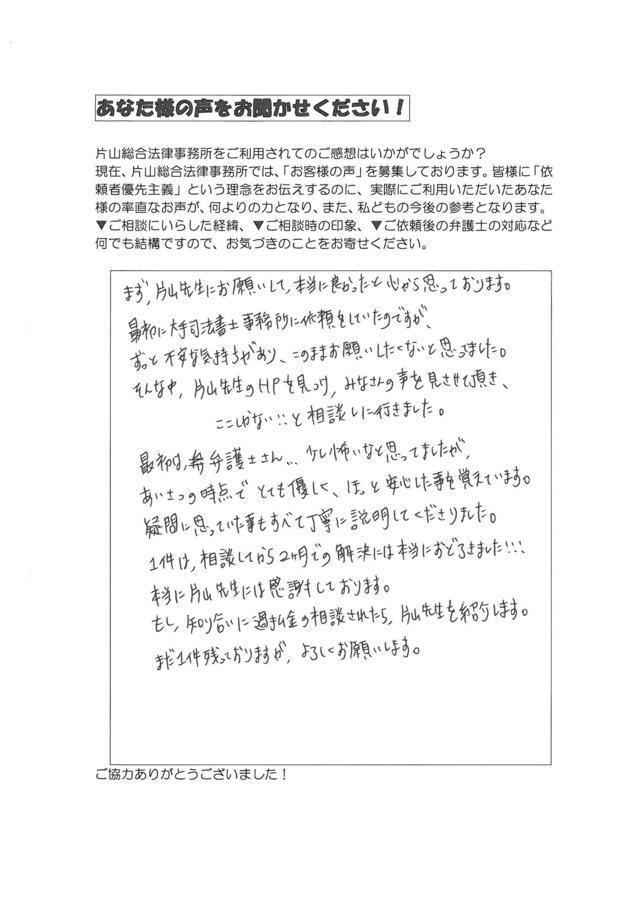 あなた様の声をお聞かせください！
片山総合法律事務所をご利用されてのご感想はいかがでしょうか？
現在、片山総合法律事務所では、「お客様の声」を募集しております。皆様に「依
頼者優先主義」という理念をお伝えするのに、実際にご利用いただいたあなた
様の率直なお声が、何よりの力となり、また、私どもの今後の参考となります。
▼ご相談にいらした経緯、▼ご相談時の印象、▼ご依頼後の弁護士の対応など
何でも結構ですので、お気づきのことをお寄せください。
まず、片山先生にお願いして、本当に良かったと心から思っております。
最初に大手司法書士事務所に依頼をしていたのですが、
ずっと不安な気持ちがあり、このままお願いしたくないと思ってました。
そんな中、片山先生のHPを見つけ、みなさんの声を見させて頂き、
ここしかない!!と相談しに行きました。
最初は、弁護士さん…少し怖いなと思ってましたが、
あいさつの時点でとても優しく、ほっと安心した事を覚えています。
疑問に思っていた事もすべて丁寧に説明してくださりました。
1件は、相談してから2ヶ月での解決には本当におどろきました!!!
本当に片山先生には感謝しております。
もし、知り合いに過払金の相談されたら、片山先生を紹介します。
まだ1件残っておりますが、よろしくお願いします。
ご協力ありがとうございました！